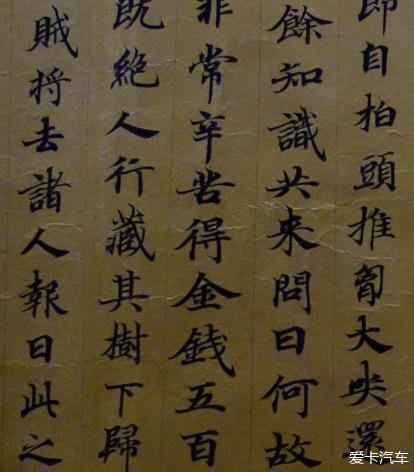 即自拍頭推匈大哭還
餘知識共来問曰何故
非常辛苦得金錢五百
既絶人行藏其樹下歸
賊将去諸人報曰此之
爱卡汽车